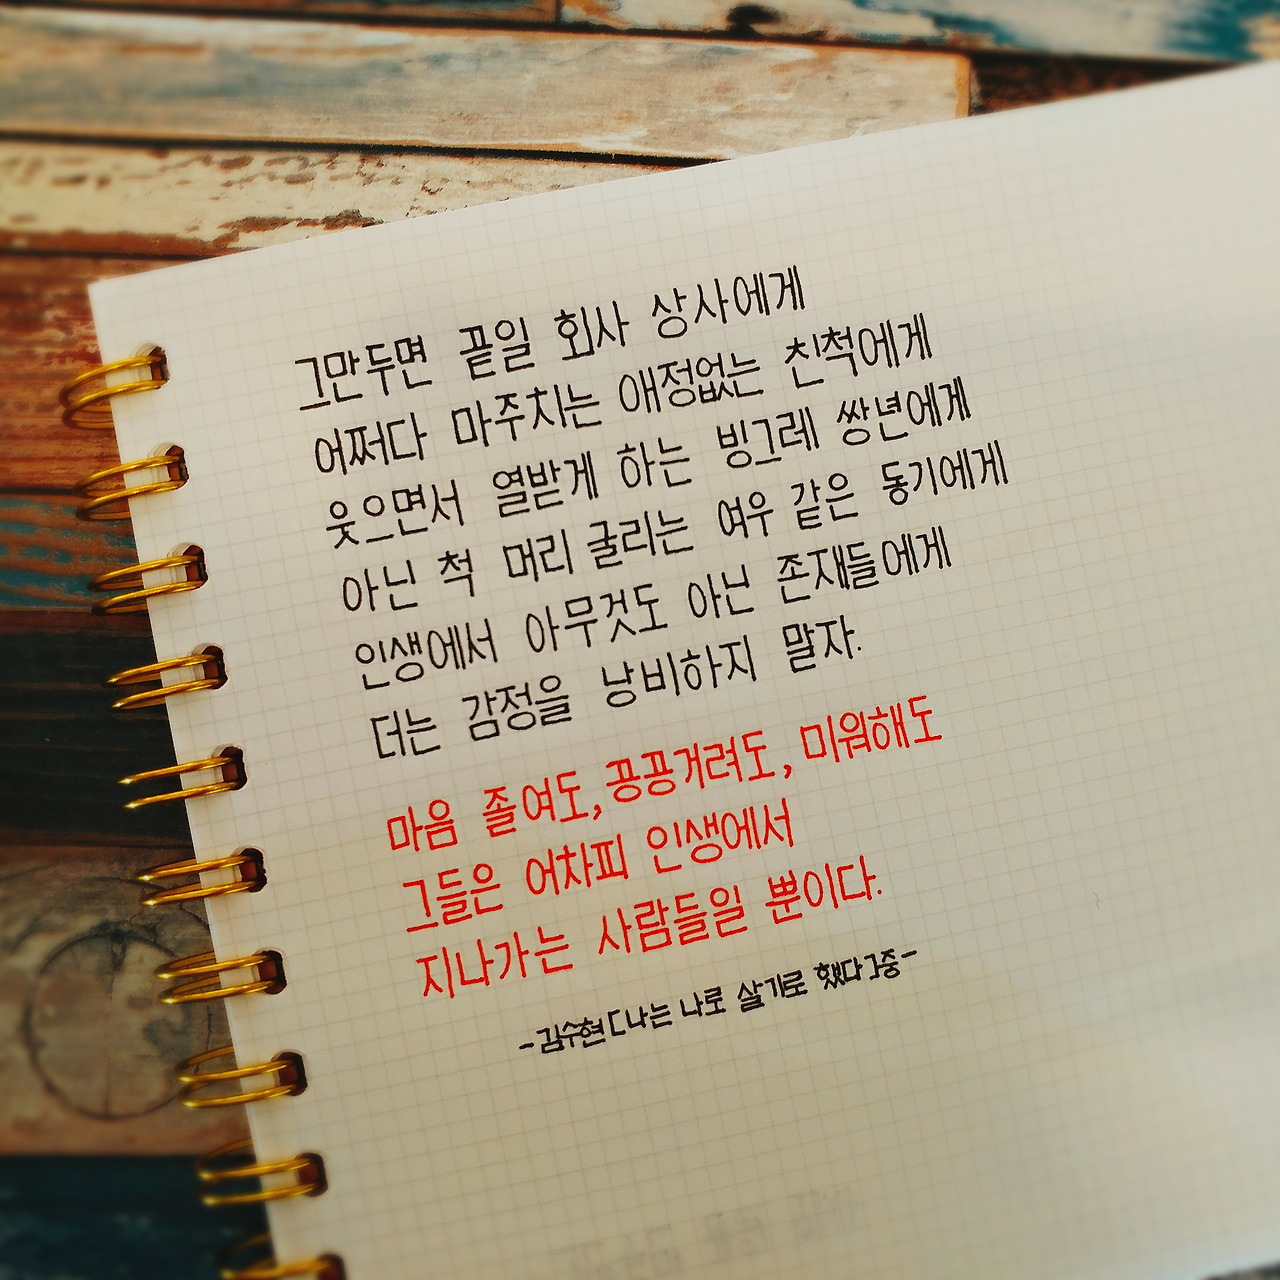 그만두면 끝일 회사 상사에게
어쩌다 마주치는 애정없는 친척에게
웃으면서 열받게 하는 빙그레 쌍년에게
아닌 척 머리 굴리는 여우 같은 동기에게
인생에서 아무것도 아닌 존재들에게
더는 감정을 낭비하지 말자.
마음 졸여도, 끙끙거려도, 미워해도
그들은 어차피 인생에서
지나가는 사람들일 뿐이다.
-김수현 [나는 나로 살기로 했다] 중-